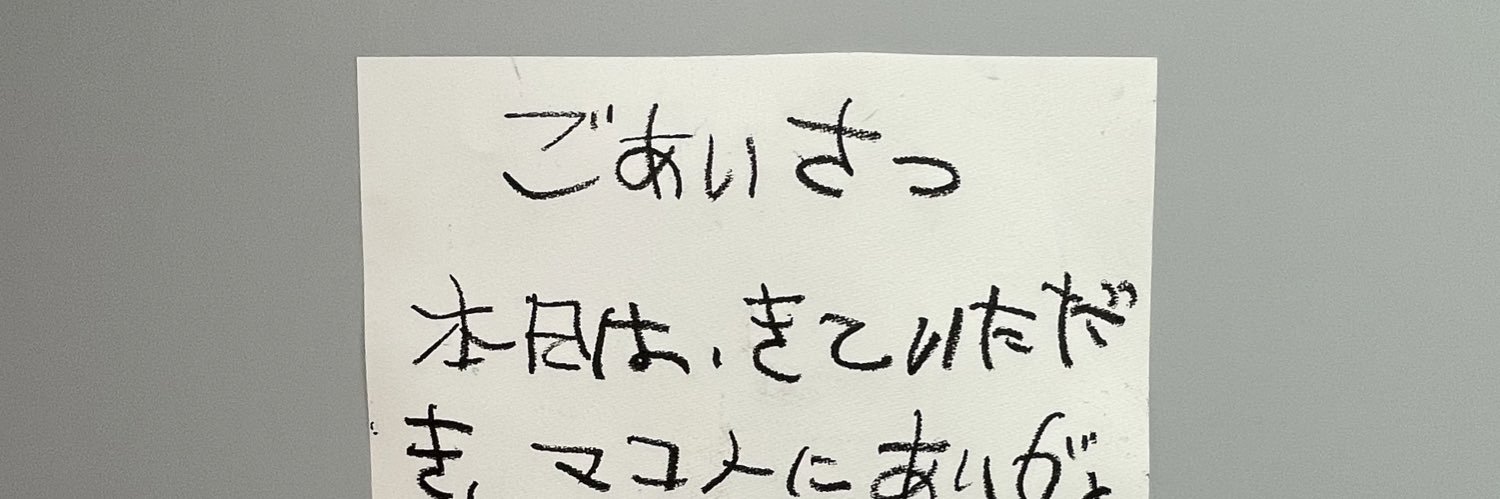 ごあいさつ
本日は、きていただ
き、マコトにありがと